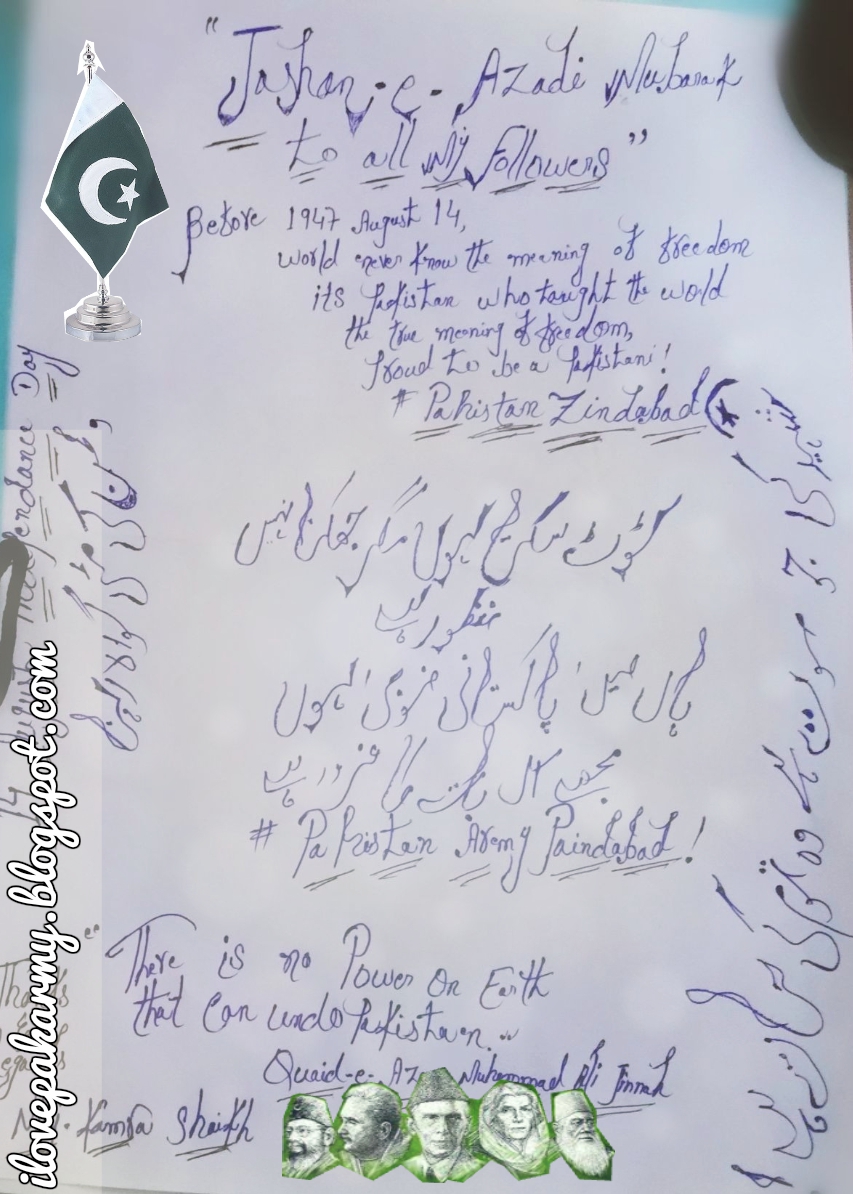 "Jashan-e-Azadi Mubarak
to all My Followers"
Before 1947 August 14,
world never know the meaning of freedom
its Pakistan who taught the world
the true meaning of freedom,
Proud to be a Pakistani!
# Pakistan Zindabad
ٹوٹ سکتی ہوں مگر جھکنا نہیں
منظور ہے
ہاں میں پاکستانی فوجی ہوں
مجھے اس بات کا غرور ہے
# Pakistan Aremy Paindabad!
"There is no Power On Earth
that Can undo Pakistaen."
Quaid-e-Az Muhammad Ali Jinnah
Kamra Shaikh
14 August Independance Day
شہید کی جو موت ہے وہ قوم کی حیات ہے
ilovepakarmy.blogspot.com